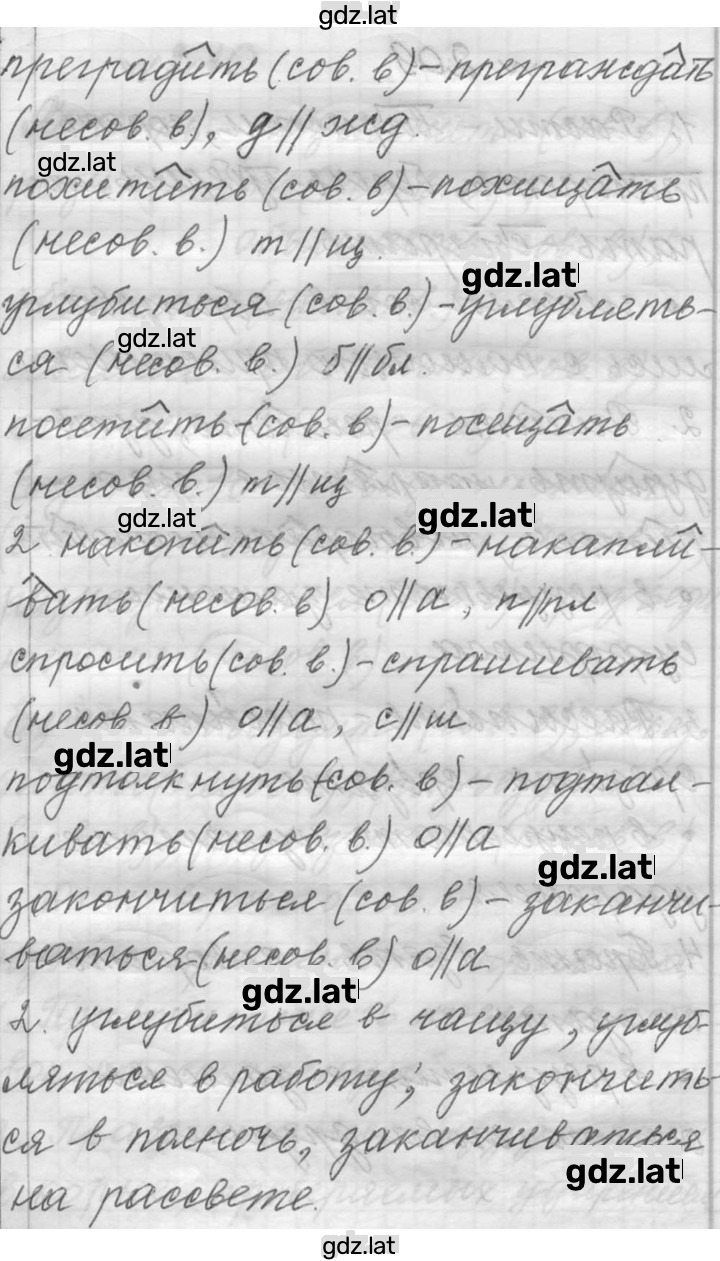 gdz.lat
преградить (сов. в) – преграждать
(несов. в.), д // жд.
gdz.lat
похитить (сов. в) – похищать
(несов. в.) т // щ.
gdz.lat
углубиться (сов. в.) – углублять-
gdz.lat
ся (несов. в.) б // бл.
посетить (сов. в) – посещать
(несов. в.) т // щ
gdz.lat
gdz.lat
2 накопить (сов. в.) – накапли-
вать (несов. в) о // а, п // пл
спросить (сов. в.) – спрашивать
(несов. в.) о // а, с // ш
gdz.lat
подтолкнуть (сов. в) – подтал-
кивать (несов. в.) о // а
gdz.lat
закончиться (сов. в) – заканчи-
ваться (несов. в) о // а
gdz.lat
2. углубиться в чащу, углуб-
ляться в работу; закончить-
ся в полночь, заканчиваться
gdz.lat
на рассвете.
gdz.lat